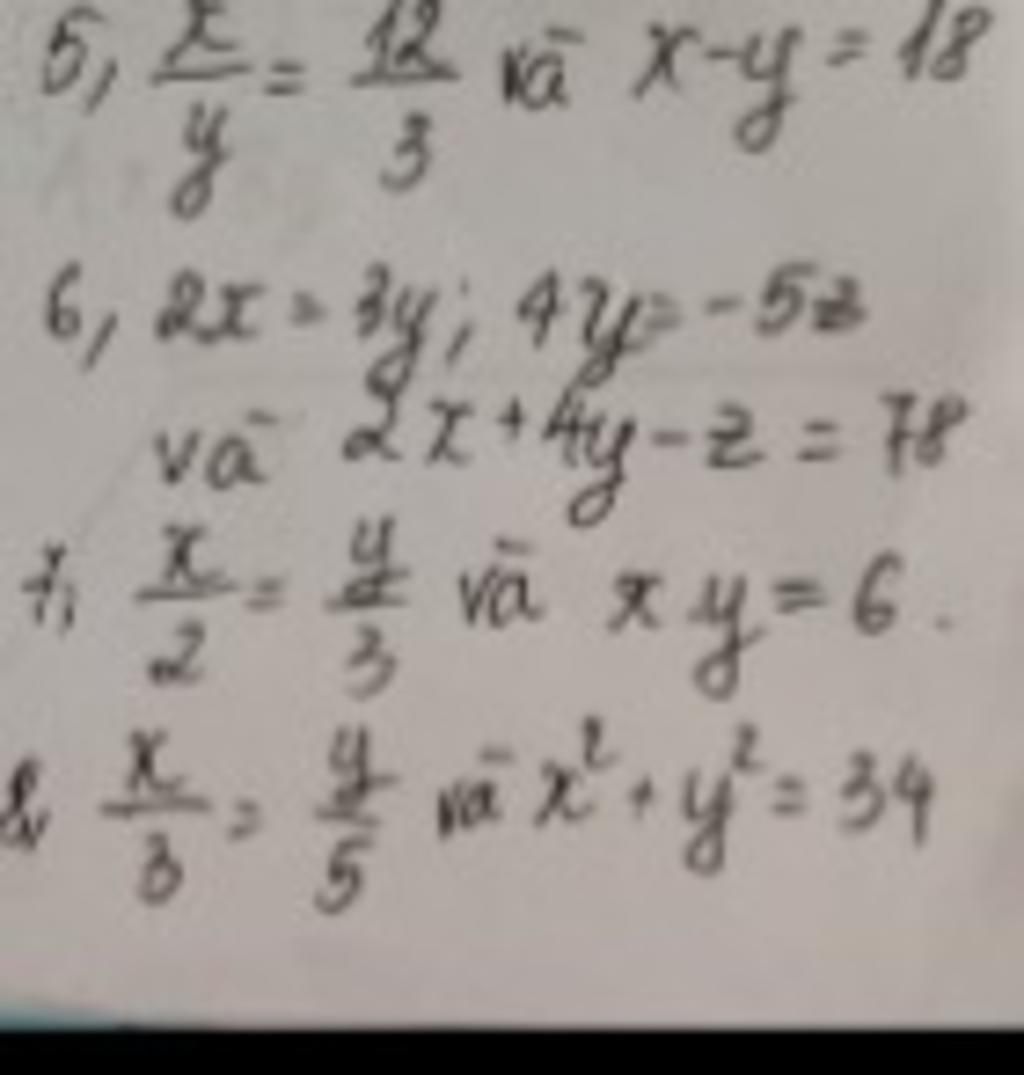 5, x/y = 12/3 và x-y = 18
6, 2x = 3y; 4y = -5z
và 2x + 4y - z = 78
7, x/2 = y/3 và xy = 6.
8, x/3 = y/5 và x² + y² = 34